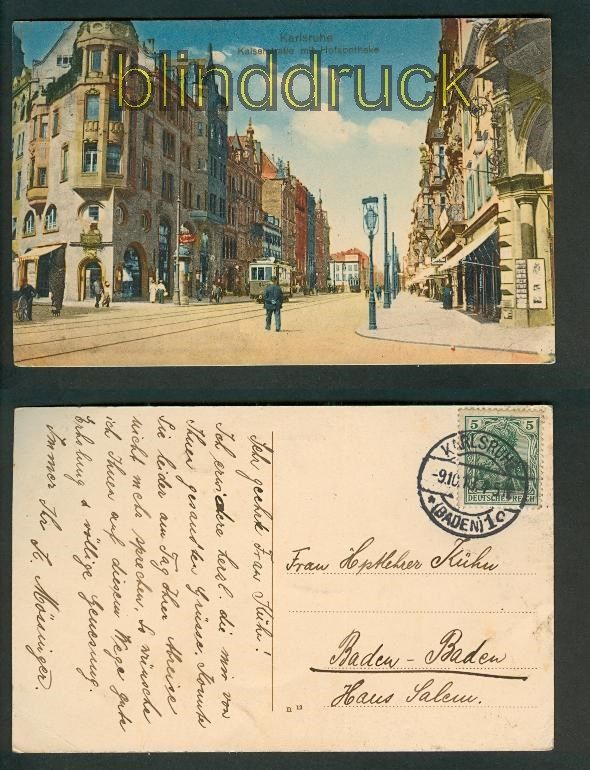 Karlsruhe
Kaiserstraße mit Hofapotheke
blinddruck
Sehr geehrte Frau Kühn!
Ich erwidere herzl. die mir von
Ihnen gesandten Grüsse. Konnte
Sie leider am Tag Ihrer Abreise
nicht mehr sprechen, so wünsche
ich Ihnen auf diesem Wege gute
Erholung & völlige Genesung.
Immer Ihr K. Mössinger.
KARLSRUHE
-9.10.
* (BADEN) 1c *
5 5
DEUTSCHES REICH
Frau Hptlehrer Kühn
Baden-Baden
Haus Salem.
II 13